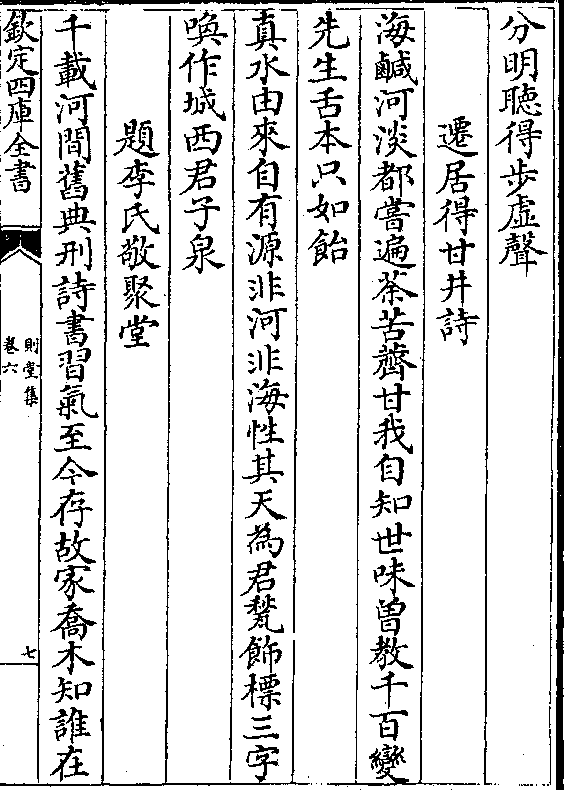 分明聽得步虛聲
遷居得甘井詩
海鹹河淡都嘗遍荼苦薺甘我自知世味曾教千百變
先生舌本只如飴
真水由來自有源非河非海性其天為君甃飾標三字
喚作城西君子泉
題李氏敬聚堂
千載河間舊典刑詩書習氣至今存故家喬木知誰在
欽定四庫全書
則堂集
卷六
七